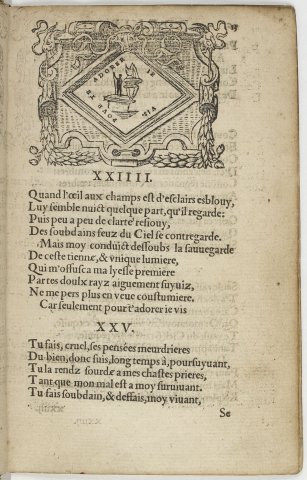 POVR TE ADORER IE VIS
XXIIII.
Quand l'œil aux champs est d'esclairs esblouy,
Luy semble nuict quelque part, qu'il regarde:
Puis peu a peu de clarté resiouy,
Des soubdains feuz du Ciel se contregarde.
Mais moy conduict dessoubs la sauuegarde
De ceste tienne, & vnique lumiere,
Qui m'offusca ma lyesse premiere
Par tes doulx rayz aiguement suyuiz,
Ne me pers plus en veue coustumiere.
Car seulement pour t'adorer ie vis
XXV.
Tu fais, cruel, ses pensées meurdrieres
Du bien, donc suis, long temps à, poursuyuant,
Tu la rendz sourde a mes chastes prieres,
Tant que mon mal est a moy suruiuant.
Tu fais soubdain, & deffais, moy viuant,
Se